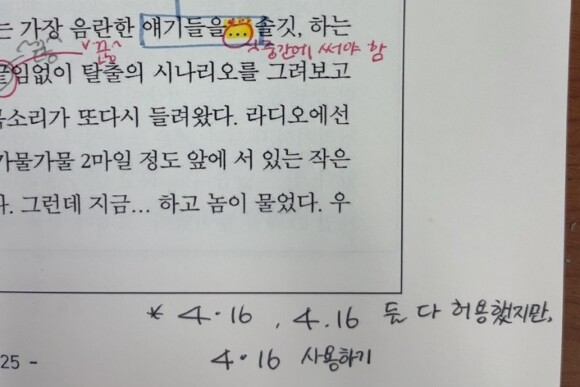 는 가장 음란한 얘기들을 … 솔깃, 하는
끊 중간에 써야 함
끝임없이 탈출의 시나리오를 그려보고
목소리가 또다시 들려왔다. 라디오에선
가물가물 2마일 정도 앞에 서 있는 작은
다. 그런데 지금… 하고 놈이 물었다. 우
* 4·16 , 4.16 둘 다 허용했지만,
25 -
4·16 사용하기